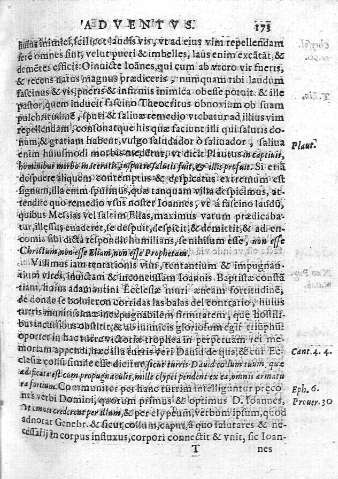 ADVENTVS. 173
huius inimici, scilicet laudis vis, vt ad eius vim repellendam
ferè omnes sint, velut pueri & imbelles, laus enim excæcat, &
dementes efficit. O inuicte Ioânes, qui cum ab vtero vir fueris,
& recens natus magnus prædiceris, numquam tibi laudum
fascinus & vis, pueris & infirmis inimica obesse potuit. & ille
pastor, quem inducit fascino Theocritus obnoxium ob suam
pulchritudinem, sputi & saliuæ remedio vtebatur ad illius vim
repellendam, consonatque his quæ faciunt illi qui salutis do-
num, & gratiam habent, vulgo saludador ò saliuador, saliua
enim huiusmodi morbis medetur, vt dicit Plautus in captiuis,
Plaut.
Si enim
despuere aliquem contemptus & despectus extremum est
signum, illa enim spuimus, quæ tanquam vilia despicimus, at-
tende quo remedio vsus noster Ioannes, vt à fascino laudis,
quibus Messias vel saltem Elias, maximus vatum prædicaba-
tur, illæsus euaderet, se despuit, despicit, & demittit, & ad en-
comia sibi dicta respondit humilians, se nihilum esse, non esse
Christum, non esse Eliam, non esse Prophetam.
Vidimus iam tentationis vim, tentantium & impugnan-
tium vires, inuictam & inconcussam Ioannis Baptistæ constâ
tiam, huius adamantini Ecclesiæ muri æneam fortitudinê,
de donde se boluieron corridas las balas del contrario, huius
turris munitissimæ inexpugnabilem firmitatem, quæ hostili-
bus incursionibus obstitit, & ab iniunctis gloriosum egit triûphû
oportet in hac turre victoriæ trophæa in perpetuam rei me-
moriam appendi, hæc illa turris veri Dauid de qua, & cui Ec-
clesiæ collû simile esse dicitur, sicut turris Dauid collum tuum, quæ
Cant. 4. 4.
ædificata est cum propugnaculis, mille clypei pendent ex ea, omnis armatu
ra fortium. Communiter per hanc turrim intelliguntur præco-
Eph. 6.
nes verbi Domini, quorum primus & optimus D. Ioannes,
Prouer. 30
vt omnes crederent per illum, & per clypeum, verbum ipsum, quod
adnotat Genebr. & sicut collum, caput, à quo salutares & ne-
in corpus influxus, corpori connectit & vnit, sic Ioan-
T nes